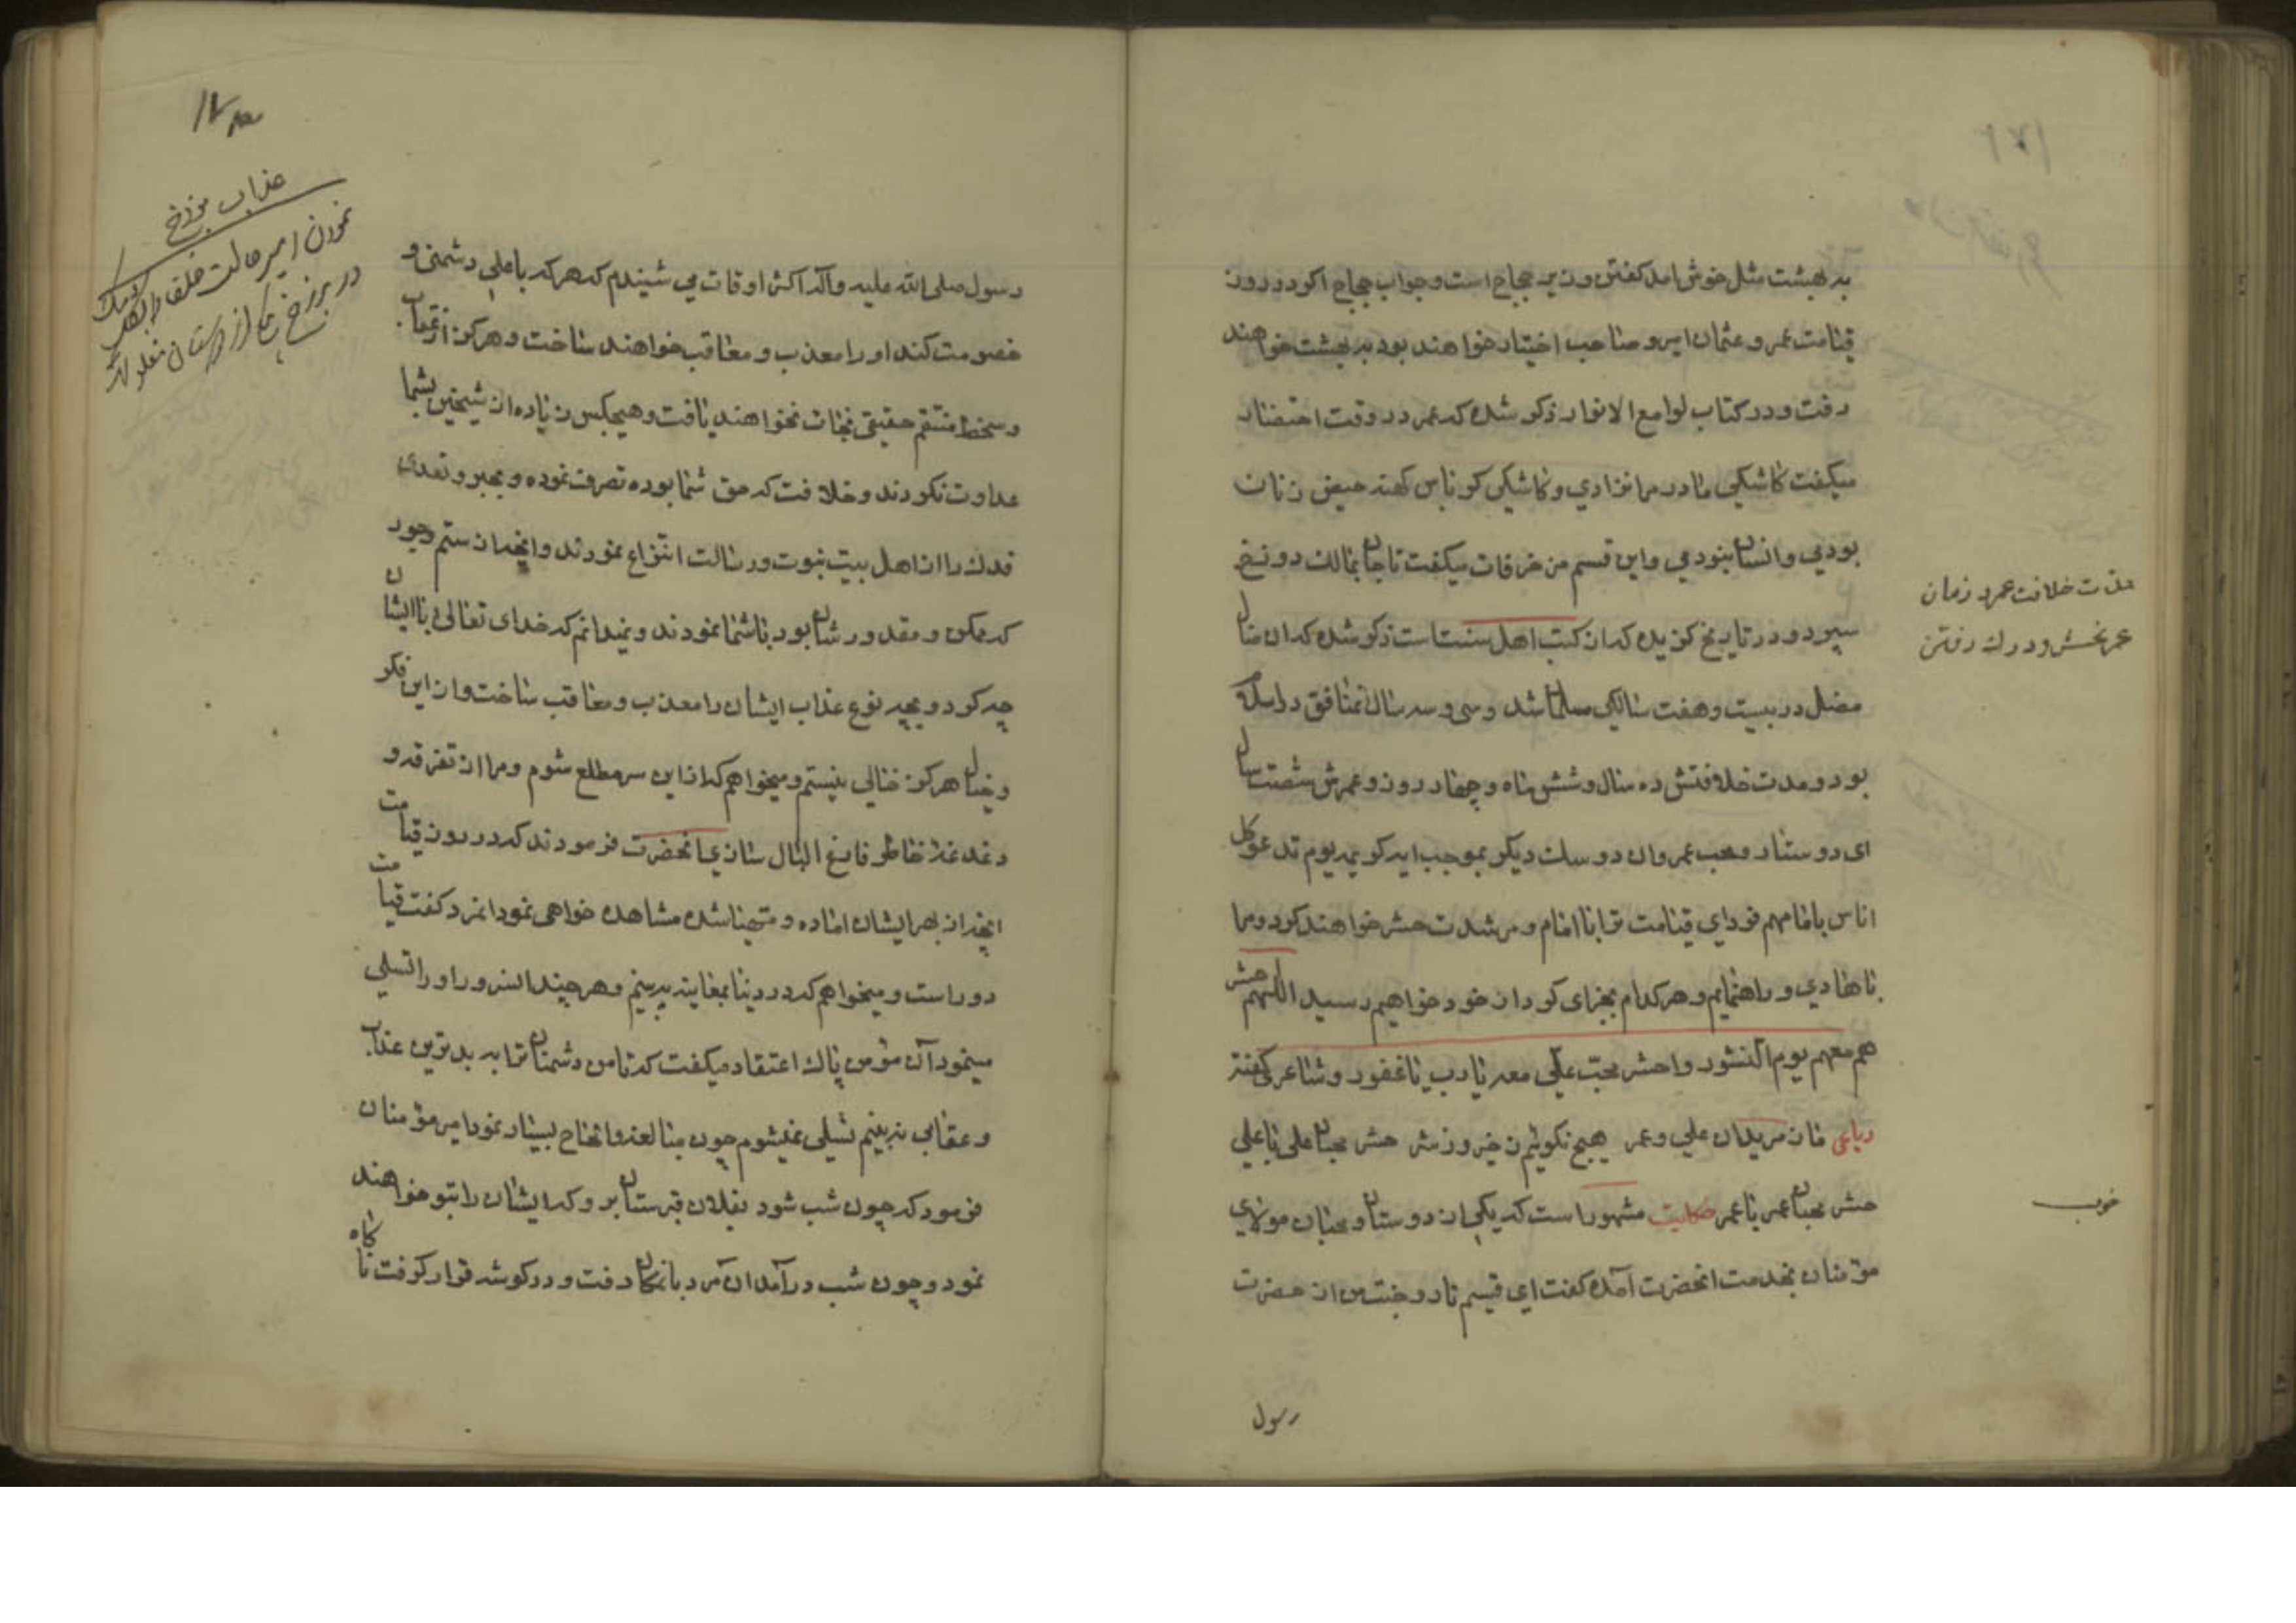 به بهشت مثل خوش امد کفتن وزیر حجاج است و جواب حجاج اکر در روز
قیامت عمر و عثمان امیر و صاحب اختیار خواهند بود به بهشت خواهند
رفت و در کتاب لوامع الانوار ذکر شده که عمر در وقت احتضار
میکفت کاشکی مادر مرا نزادي و کاشکی کرباس کهنه حیض زنان
بودیي و انسان نبودمي و این قسم مزخرفات میکفت تا جان بمالک دوزخ
سپرد و در تاریخ کزیده که از کتب اهل سنت است ذکر شده که ان ضال
مضل در بیست و هفت سالکی مسلمان شد و سی و سه سال منافق در اسلام
بود و مدت خلافتش ده سال و شش ماه و چهار روز و عمرش شصت سال
ای دوستار و محب عمر و ان دو سک دیکر بموجب ایه کریمه یوم ندعو کل
اناس بامامهم فردای قیامت ترا با امام و مرشدت حشر خواهند کرد و مرا
با هادي و راهنمایم و هر کدام بجزای کردار خود خواهیم رسید اللهم حشر
هم معهم یوم النشور و احشر محبّ علّي معه یا رب یا غفور و شاعری کفته
رباعی فان مریدان علي و عمر هیچ نکویم زخیر و زشر حشر محبان علی با علي
حشر محبان عمر با عمر حکایت مشهور است که یکی از دوستان و محبان مولاي
مؤمنان بخدمت انحضرت آمده کفت ای قسیم نار و جنت من از حضرت
رسول
مدت خلافت عمر و زمان
عمر نحسش و درک رفتن
خوب
۱۷۳
عذاب برزخ
نمودن امیر حالت خلفا
در برزخ از دوستان
رسول صلی الله علیه و آله اکثر اوقات مي شنیدم که هر که با علي دشمنی و
خصومت کند او را معذب و معاقب خواهند ساخت و هرکز از عقاب
و سخط منتقم حقیقی نجات نخواهند یافت و هیچکس زیاده از شیخین بشما
عداوت نکردند و خلافت که حق شما بوده تصرف نموده و بجبر و تعدی
فدک را از اهل بیت نبوت و رسالت انتزاع نمودند و انچه از ستم و جور
که ممکن و مقدور شان بود با شما نمودند و نمیدانم که خدای تعالی با ایشان
چه کرد و بچه نوع عذاب ایشان را معذب و معاقب ساخت و از این فکر
و خیال هرکز خالي نیستم و میخواهم که از این سر مطلع شوم و مرا از تفرقه و
دغدغه خاطر فارغ البال سازي انحضرت فرمودند که در روز قیامت
انچه از بهر ایشان اماده و مهیا شده مشاهده خواهی نمود انمرد کفت قیامت
دور است و میخواهم که در دنیا بمعاینه ببینم و هر چند السرور او را تسلی
مینمود آن مؤمن پاک اعتقاد میکفت که تا من دشمنان ترا به بدترین عذاب
و عقابي نه بینم تسلی نمیشوم چون مبالغه و الحاح بسیار نمود امیر مؤمنان
فرمود که چون شب شود بفلان قبرستان برو که ایشان را بتو خواهند
نمود و چون شب درآمد ان مرد بانمکان رفت و در کوشه قرار کرفت ناکاه